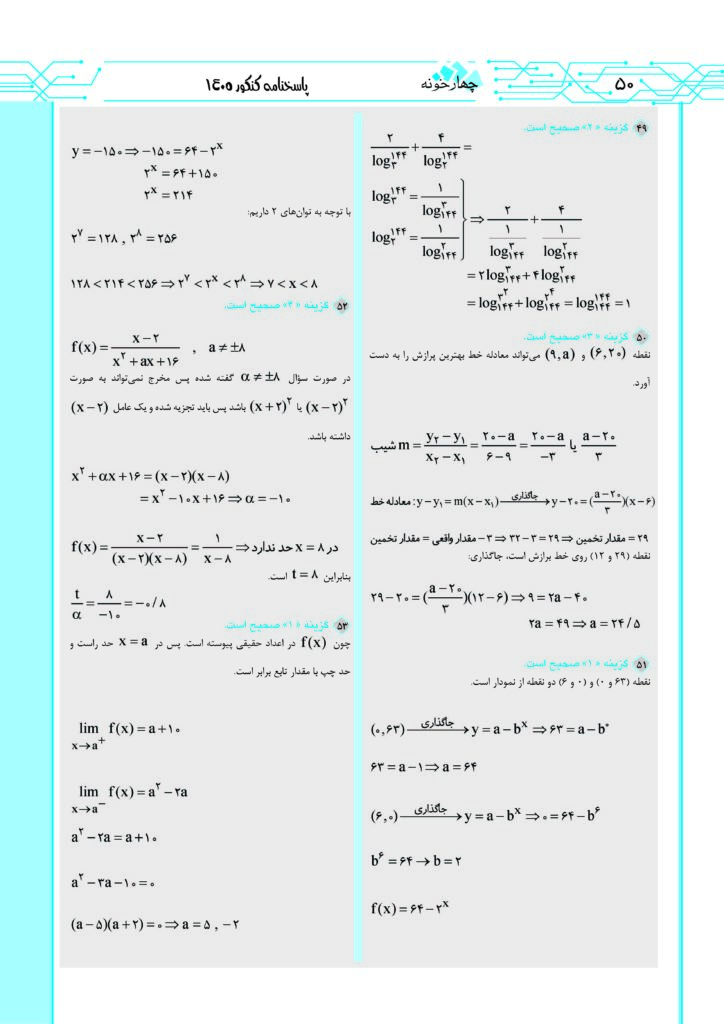 ۵۰
چهارخونه
پاسخنامه کنکور ۱۴۰۵
۴۹ گزینه «۲» صحیح است.
2/log₃¹⁴⁴ + ۴/log₂¹⁴⁴ =
log₃¹⁴⁴ = ۱/log₁₄₄³
log₂¹⁴⁴ = ۱/log₁₄₄² ⇒ ۲/(۱/log₁₄₄³) + ۴/(۱/log₁₄₄²)
= ۲log₁₄₄³ + ۴log₁₄₄²
= log₁₄₄^(۳^۲) + log₁₄₄^(۲^۴) = log₁₄₄¹⁴⁴ = ۱
۵۰ گزینه «۳» صحیح است.
نقطه (۶,۲۰) و (۹,a) می‌تواند معادله خط بهترین پرازش را به دست
آورد.
شیب m = (y₂ − y₁)/(x₂ − x₁) = (۲۰ − a)/(۶ − ۹) = (۲۰ − a)/(−۳) یا (a − ۲۰)/۳
معادله خط : y − y₁ = m(x − x₁) جاگذاری⟶ y − ۲۰ = ((a − ۲۰)/۳)(x − ۶)
۲۹ = مقدار تخمین ⇒ ۲۹ = ۳ − ۳۲ ⇒ ۳ − مقدار واقعی = مقدار تخمین
نقطه (۲۹ و ۱۲) روی خط برازش است، جاگذاری:
۲۹ − ۲۰ = ((a − ۲۰)/۳)(۱۲ − ۶) ⇒ ۹ = ۲a − ۴۰
۲a = ۴۹ ⇒ a = ۲۴/۵
۵۱ گزینه «۱» صحیح است.
نقطه (۶۳ و ۰) و (۰ و ۶) دو نقطه از نمودار است.
(۰,۶۳) جاگذاری⟶ y = a − bˣ ⇒ ۶۳ = a − b⁰
۶۳ = a − ۱ ⇒ a = ۶۴
(۶,۰) جاگذاری⟶ y = a − bˣ ⇒ ۰ = ۶۴ − b⁶
b⁶ = ۶۴ → b = ۲
f(x) = ۶۴ − ۲ˣ
y = −۱۵۰ ⇒ −۱۵۰ = ۶۴ − ۲ˣ
۲ˣ = ۶۴ + ۱۵۰
۲ˣ = ۲۱۴
با توجه به توان‌های ۲ داریم:
۲⁷ = ۱۲۸ , ۲⁸ = ۲۵۶
۱۲۸ < ۲۱۴ < ۲۵۶ ⇒ ۲⁷ < ۲ˣ < ۲⁸ ⇒ ۷ < x < ۸
۵۲ گزینه «۳» صحیح است.
f(x) = (x − ۲)/(x² + ax + ۱۶) , a ≠ ±۸
در صورت سؤال α ≠ ±۸ گفته شده پس مخرج نمی‌تواند به صورت
(x − ۲)² یا (x + ۲)² باشد پس باید تجزیه شده و یک عامل (x − ۲)
داشته باشد.
x² + αx + ۱۶ = (x − ۲)(x − ۸)
= x² − ۱۰x + ۱۶ ⇒ α = −۱۰
f(x) = (x − ۲)/((x − ۲)(x − ۸)) = ۱/(x − ۸) ⇒ در x = ۸ حد ندارد
بنابراین t = ۸ است.
t/α = ۸/−۱۰ = −۰/۸
۵۳ گزینه «۱» صحیح است.
چون f(x) در اعداد حقیقی پیوسته است. پس در x = a حد راست و
حد چپ با مقدار تابع برابر است.
lim f(x) = a + ۱۰
x→a⁺
lim f(x) = a² − ۲a
x→a⁻
a² − ۲a = a + ۱۰
a² − ۳a − ۱۰ = ۰
(a − ۵)(a + ۲) = ۰ ⇒ a = ۵ , −۲